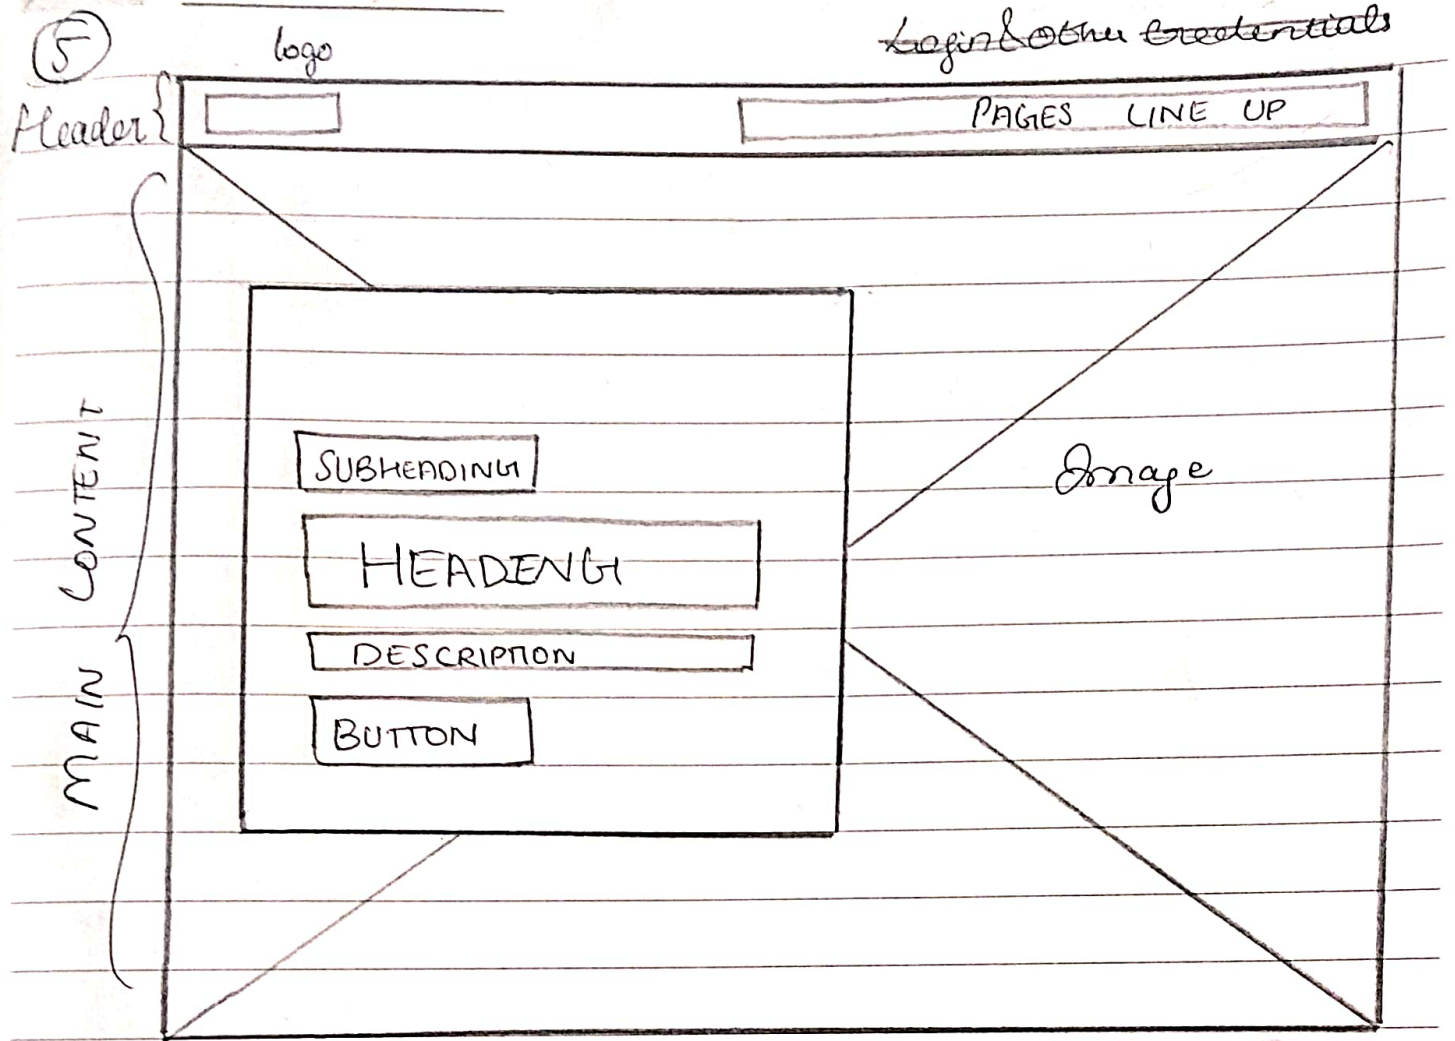 5
logo
Login & other Credentials
Header
PAGES LINE UP
MAIN CONTENT
SUBHEADING
HEADING
Image
DESCRIPTION
BUTTON